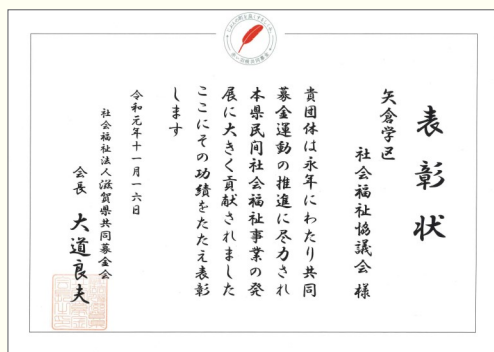 表彰状
矢倉学区
社会福祉協議会 様
貴団体は永年にわたり共同
募金運動の推進に尽力され
本県民間社会福祉事業の発
展に大きく貢献されました
ここにその功績をたたえ表彰
します
令和元年十一月一六日
社会福祉法人滋賀県共同募金会
会長 大道良夫